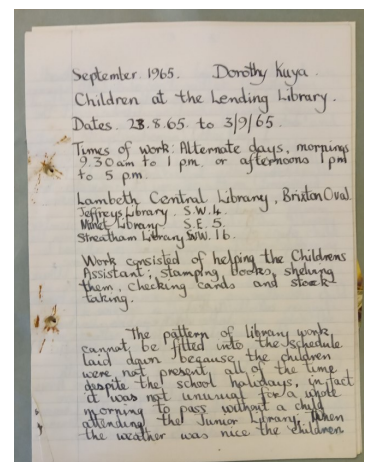 September. 1965. Dorothy Kuya.
Children at the Lending Library.
Dates. 23.8.65. to 3/9/65.
Times of work: Alternate days, mornings
9.30am to 1 pm. or afternoons 1pm
to 5 p.m.
Lambeth Central Library, Brixton Oval.
Jeffreys Library. S.W.4.
Minet Library S.E.5.
Streatham Library SW.16.
Work consisted of helping the Childrens
Assistant; stamping books, shelving
them, checking cards and stock
taking.
The pattern of library work
cannot be fitted into the schedule
laid down because the children
were not present all of the time
despite the school holidays, in fact
it was not unusual for a whole
morning to pass without a child
attending the Junior Library. When
the weather was nice the children